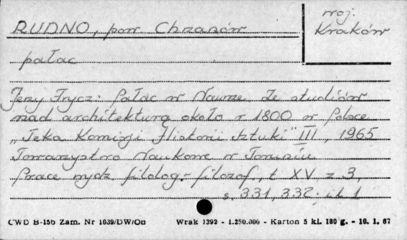 RUDNO, pow. Chrzanów
woj. Kraków
pałac
Jerzy Frycz: Pałac w Nawrze. Ze studiów
nad architekturą około r 1800 w Polsce
„Teka Komisji Historii Sztuki" III, 1965
Towarzystwo Naukowe w Toruniu
Prace wydz. filolog.- filozof., t XV, z 3,
s. 331, 332; il. 1
CWD B-15b Zam. Nr 1039/DW/On Wrak 1392 - 1.250.000 - Karton 5 kl. 180 g. - 10. 1. 67